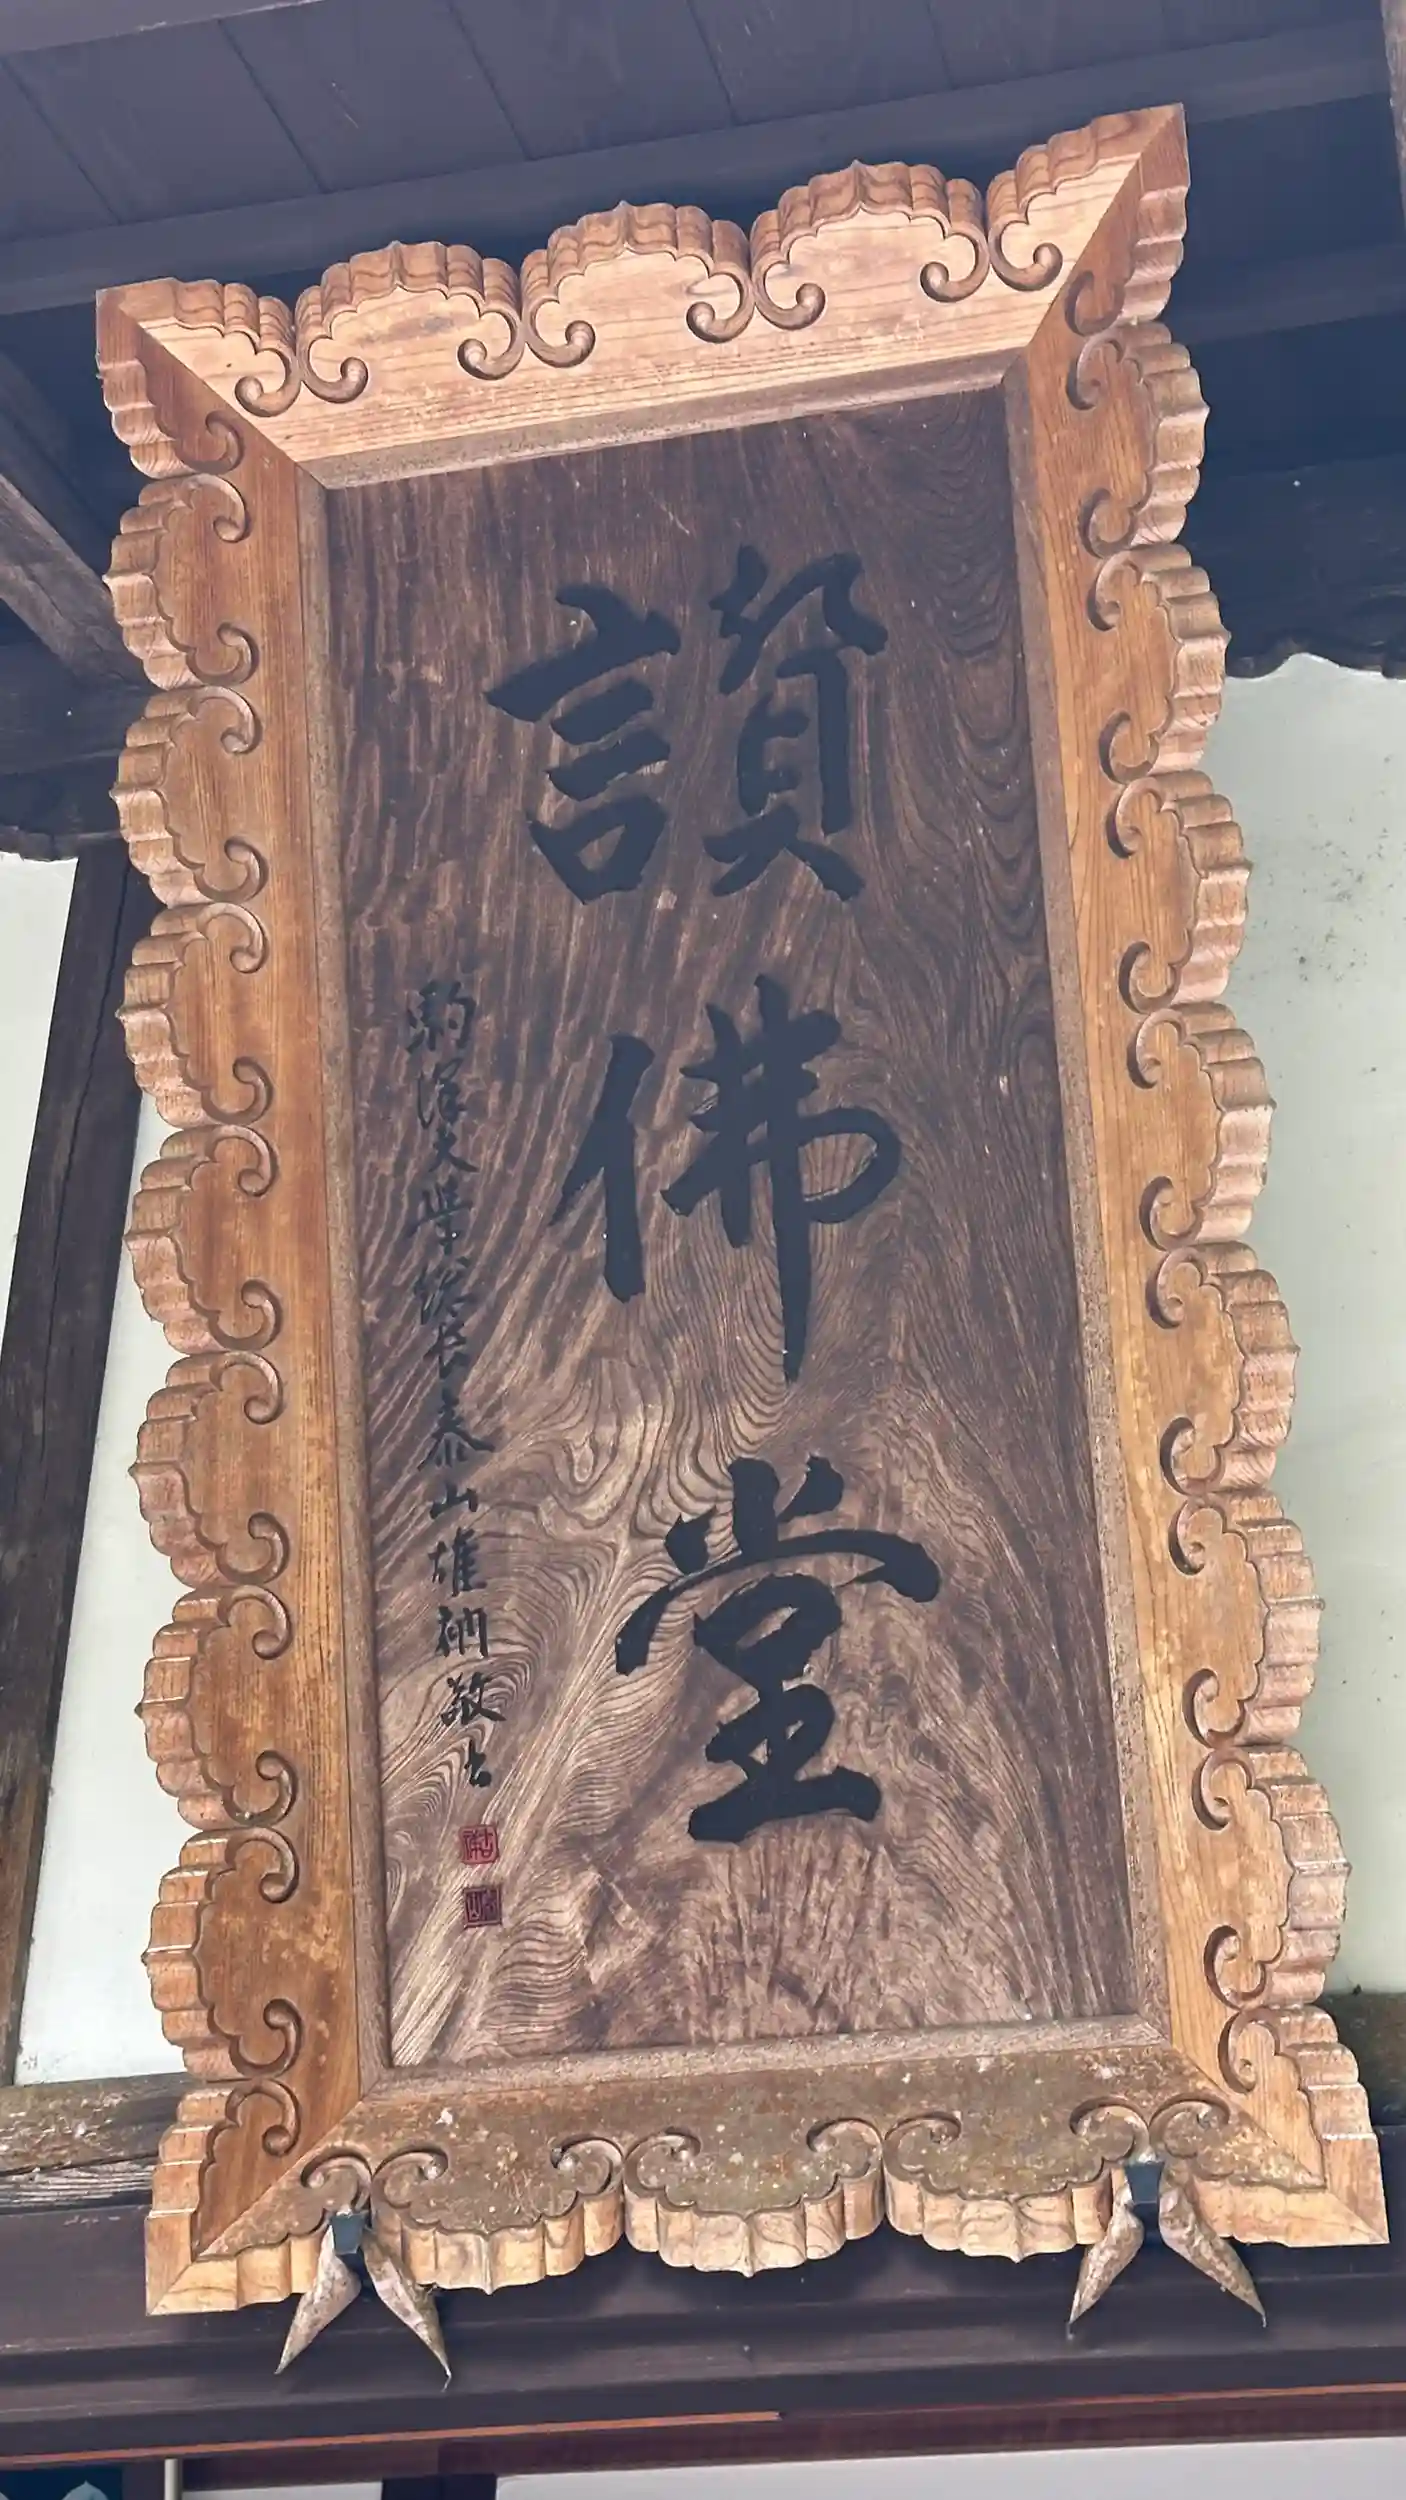 讃佛堂
駒澤大學総長泰山雄衲敬書